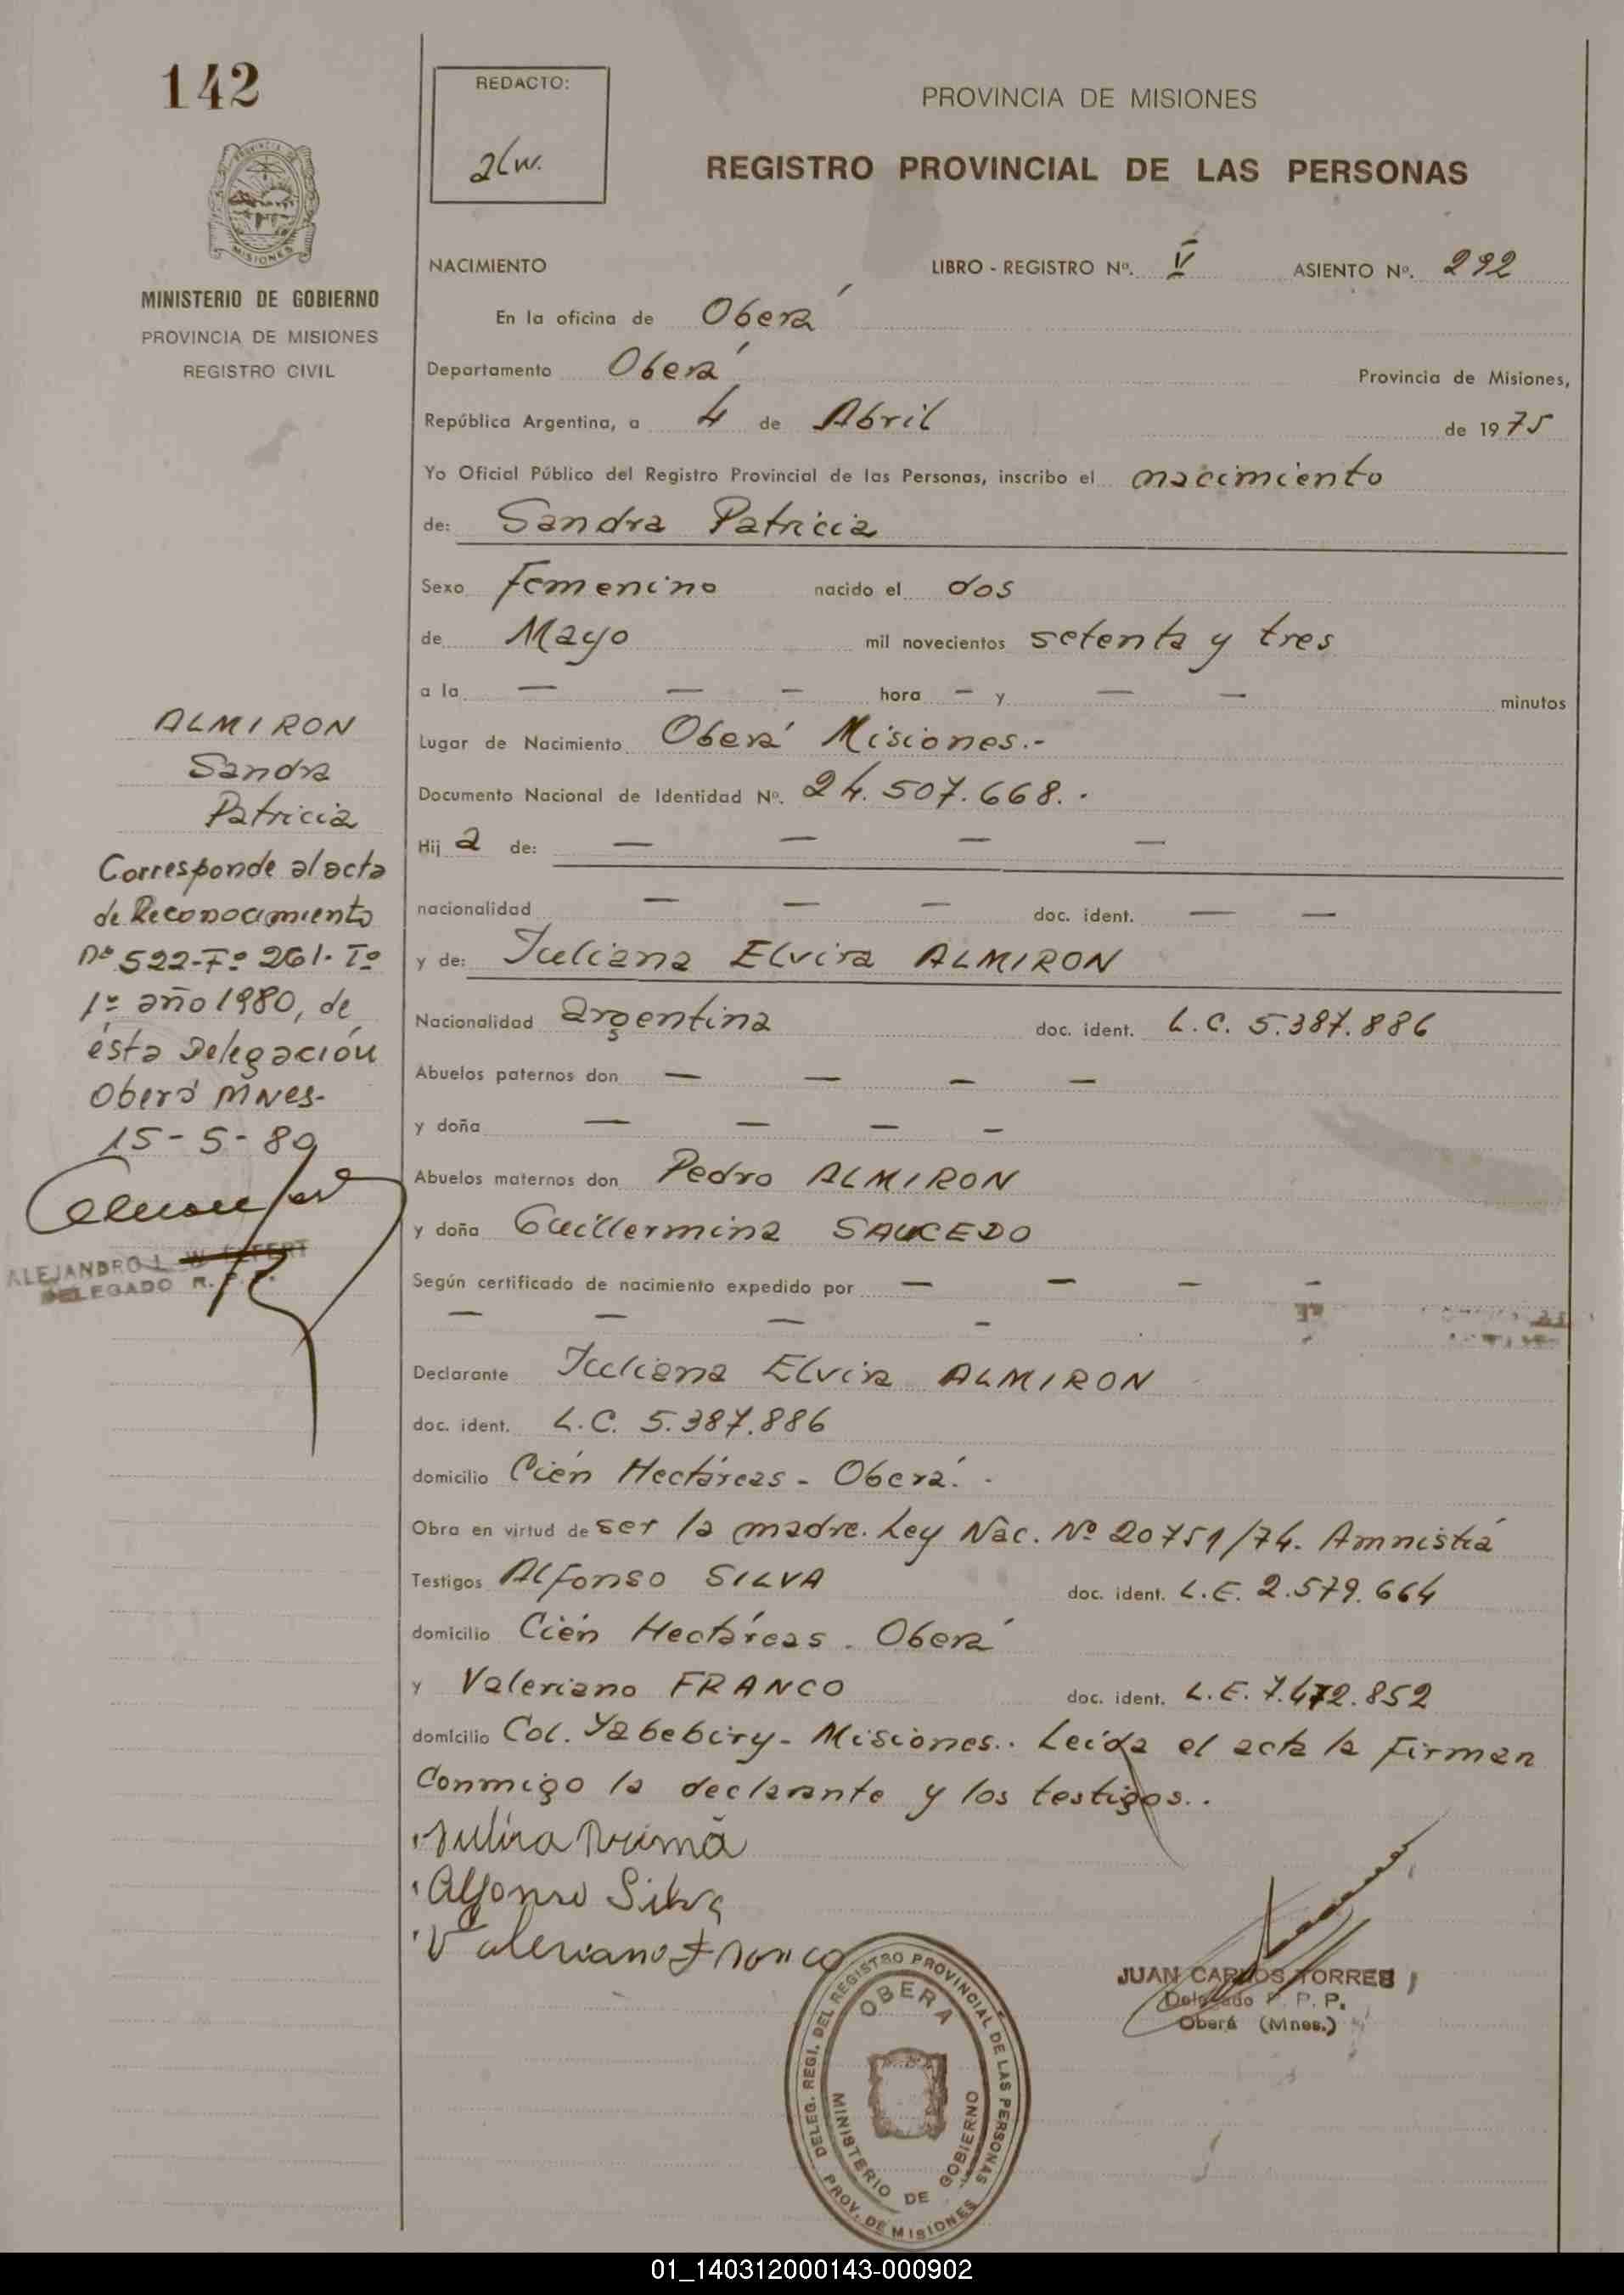 142
REDACTO:
PROVINCIA DE MISIONES
REGISTRO PROVINCIAL DE LAS PERSONAS
PROVINCIA DE
MISIONES
MINISTERIO DE GOBIERNO
PROVINCIA DE MISIONES
REGISTRO CIVIL
NACIMIENTO LIBRO - REGISTRO Nº. V ASIENTO Nº. 292
En la oficina de Oberá
Departamento Oberá Provincia de Misiones,
República Argentina, a 4 de Abril de 1975
Yo Oficial Público del Registro Provincial de las Personas, inscribo el nacimiento
de: Sandra Patricia
Sexo Femenino nacido el dos
de Mayo mil novecientos setenta y tres
a la — — — hora — y — — minutos
Lugar de Nacimiento Oberá Misiones.-
Documento Nacional de Identidad Nº. 24.507.668.-
Hij a de: — — — —
nacionalidad — — — doc. ident. — —
y de: Juliana Elvira ALMIRON
Nacionalidad argentina doc. ident. L.C. 5.387.886
Abuelos paternos don — — — —
y doña — — — —
Abuelos maternos don Pedro ALMIRON
y doña Guillermina SAUCEDO
Según certificado de nacimiento expedido por — — — —
— — — —
Declarante Juliana Elvira ALMIRON
doc. ident. L.C. 5.387.886
domicilio Cién Hectáreas - Oberá.-
Obra en virtud de ser la madre. Ley Nac. Nº 20751/74. Amnistía
Testigos Alfonso SILVA doc. ident. L.E. 2.579.664
domicilio Cién Hectáreas - Oberá
y Valeriano FRANCO doc. ident. L.E. 7.472.852
domicilio Col. Yabebiry - Misiones.. Leída el acta la Firman
Conmigo la declarante y los testigos..
Alfonso Silva
Valeriano Franco
JUAN CARLOS TORRES
Delegado P. P. P.
Oberá (Mnes.)
DELEG. REGI. DEL REGISTRO PROVINCIAL DE LAS PERSONAS
OBERA
MINISTERIO DE GOBIERNO
PROV. DE MISIONES
ALMIRON
Sandra
Patricia
Corresponde al acta
de Reconocimiento
Nº 522-Fº 261. Tº
1º año 1980, de
ésta Delegación
Oberá MNes-
15-5-80
ALEJANDRO L. W.
DELEGADO R. P. P.
01_140312000143-000902